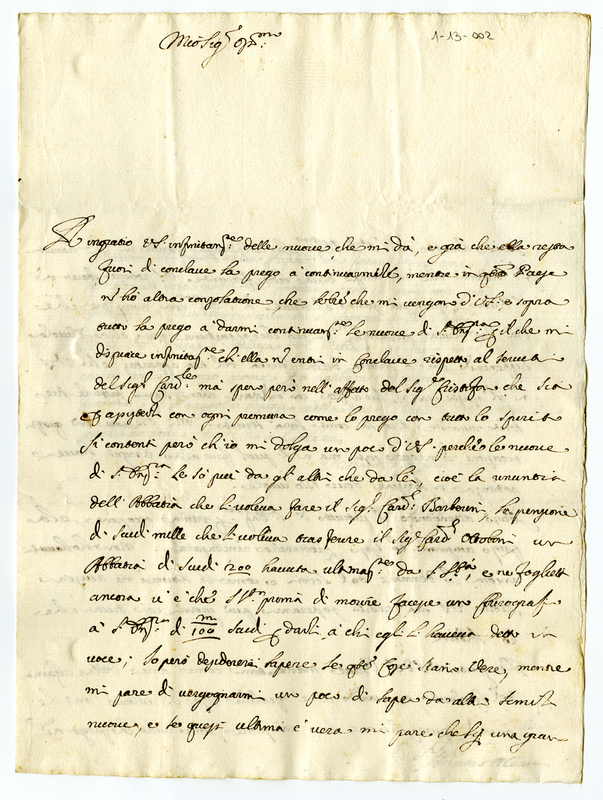 1-13-002
Mio Sig.r
Ringratio V.S. infinitam.te delle nuove che mi dà, e già che ella resta
fuori di conclave la prego à continuarmele, mentre in q.sto Paese
n' hò altra consolatione, che le l're che mi vengon d'V.S. e sopra
tutto la prego à darmi le nuove di il che mi
dispiace infinitam.te ch'ella n' entri in Conclave rispetto al
del Sig.r Card.le mà spero però nell'affetto del Sig.r che sia
con ogni premura come lo prego con tutto lo spirito
Si contenti però ch'io mi dolga un poco d'V.S. perche le nuove
di le sò più da gl'altri che da lei, cioè la renuntia
dell'Abbatia che li voleva fare il Sig.r Card.l Barberini, la pensione
di scudi mille che li voleva trasferire il Sig.r Card.l Otthoboni un
Abbatia di scudi 1200 havuta ultimam.te da e ne foglietti
ancora vi è che prima di morire facesse un
à di m/100 scudi darli à chi egli li haveva detto in
voce; Io però desiderei sapere se q.ste cose siano vere, mentre
mi pare di vergognarmi un poco di saper da altri simili
nuove, e se questa ultima è vera mi pare che sij una gran